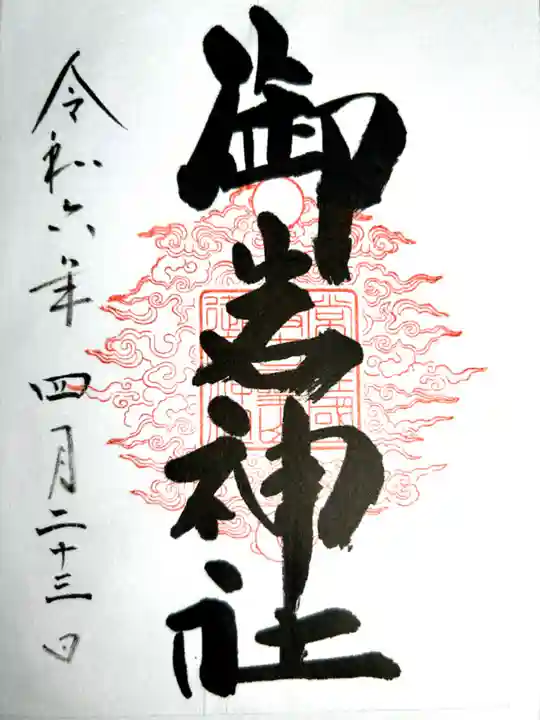 御岩神社
令和六年四月二十三日